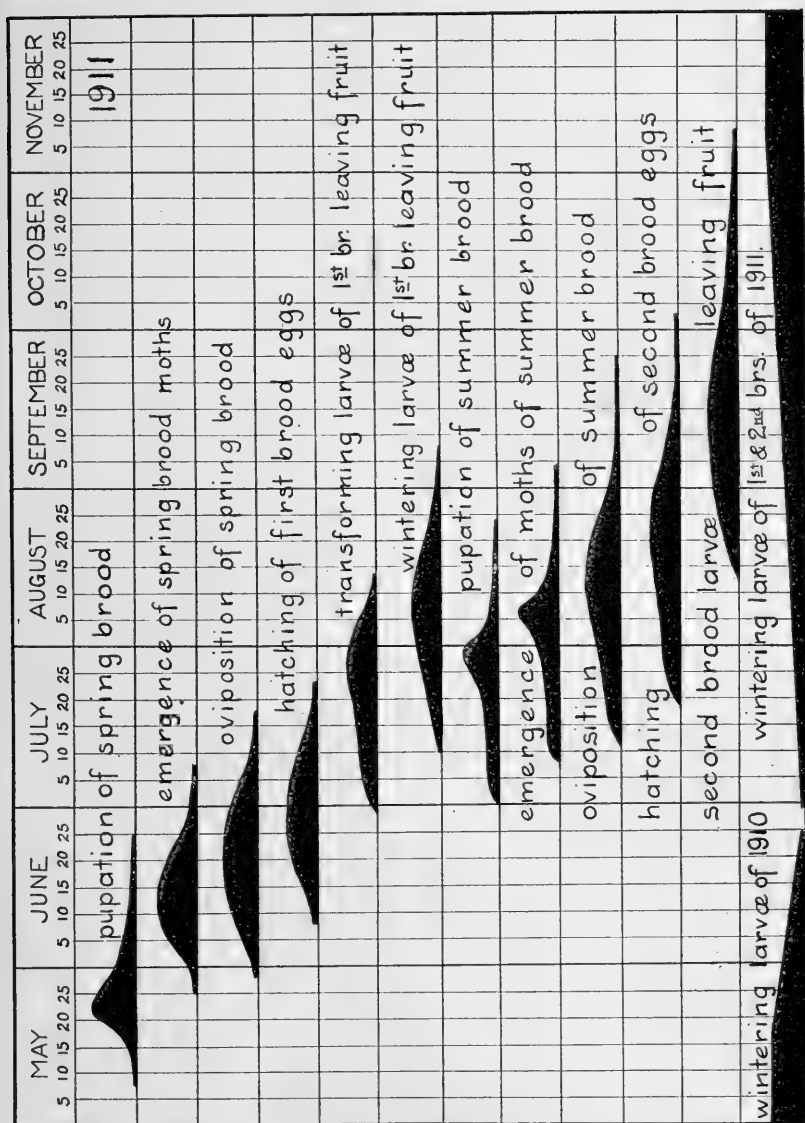 MAY JUNE JULY AUGUST SEPTEMBER OCTOBER NOVEMBER
5 10 15 20 25 5 10 15 20 25 5 10 15 20 25 5 10 15 20 25 5 10 15 20 25 5 10 15 20 25 5 10 15 20 25
1911
pupation of spring brood
emergence of spring brood moths
oviposition of spring brood
hatching of first brood eggs
transforming larvæ of 1st br. leaving fruit
wintering larvæ of 1st br. leaving fruit
pupation of summer brood
emergence of moths of summer brood
oviposition of summer brood
hatching of second brood eggs
second brood larvæ leaving fruit
wintering larvæ of 1910 wintering larvæ of 1st & 2nd brs. of 1911.